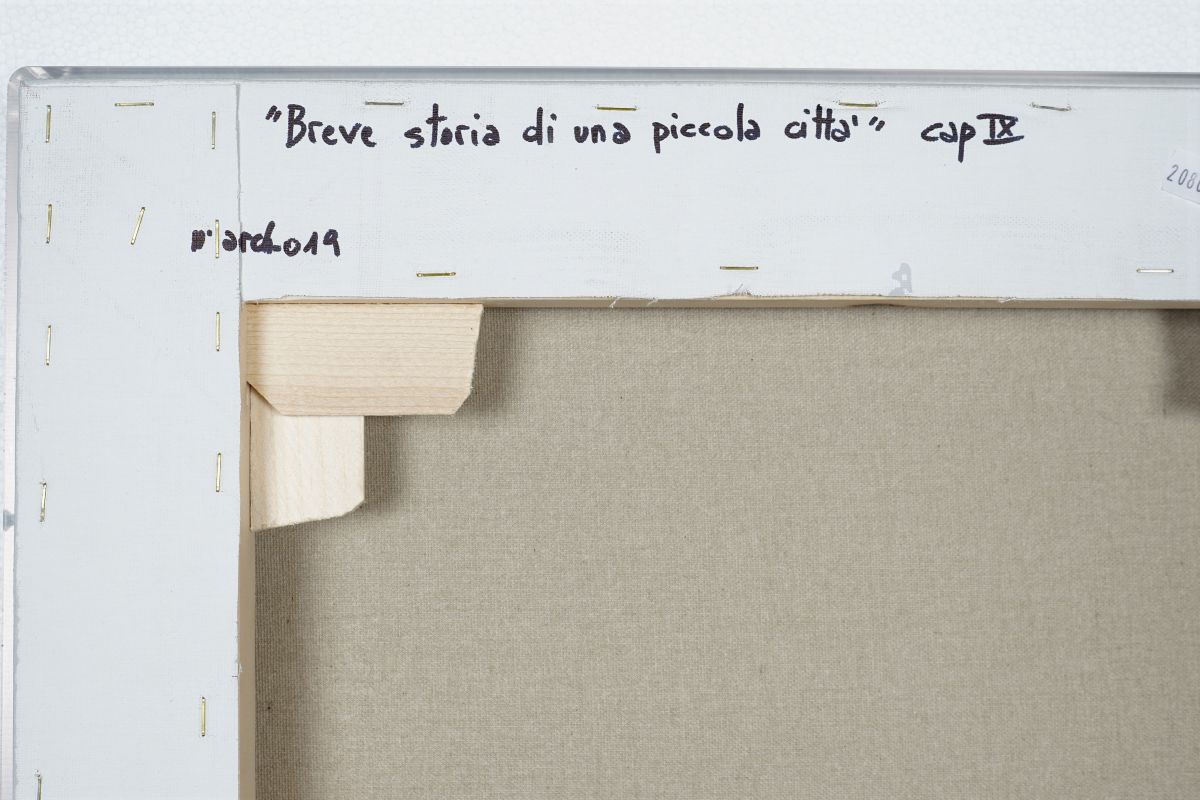 "Breve storia di una piccola citta'" cap IX
208